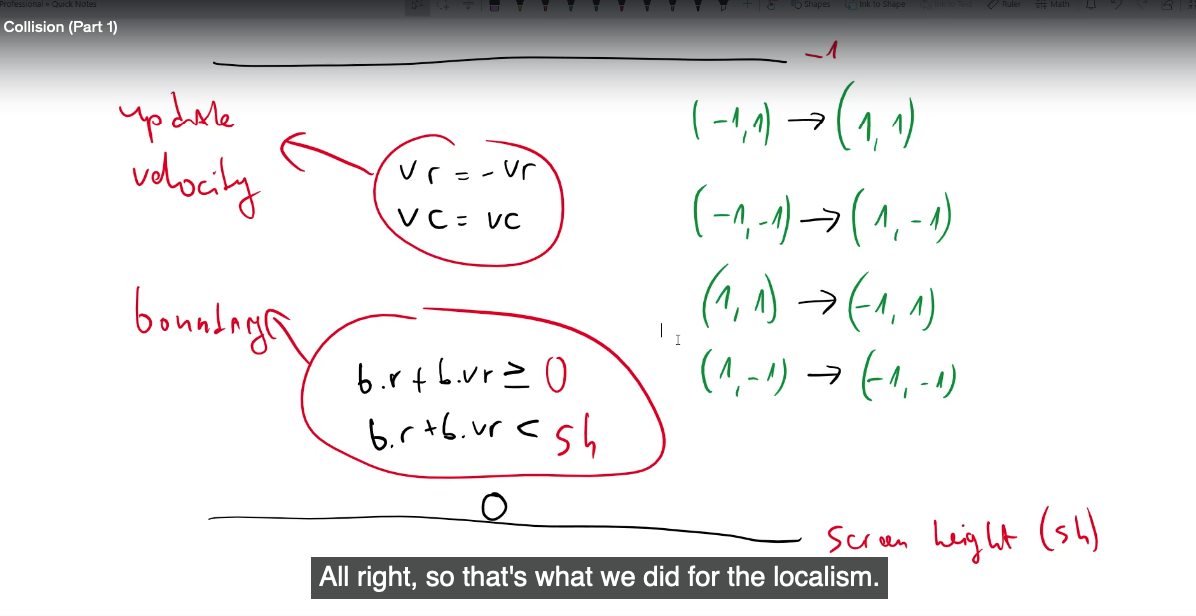 Professional » Quick Notes
Shapes
Ink to Shape
Ink to Text
Ruler
Math
Collision (Part 1)
-1
update
velocity
vr = -vr
vc = vc
(-1,1) → (1,1)
(-1,-1) → (1,-1)
(1,1) → (-1,1)
(1,-1) → (-1,-1)
b.r + b.vr ≥ 0
b.r + b.vr < sh
Screen height (sh)
All right, so that's what we did for the localism.